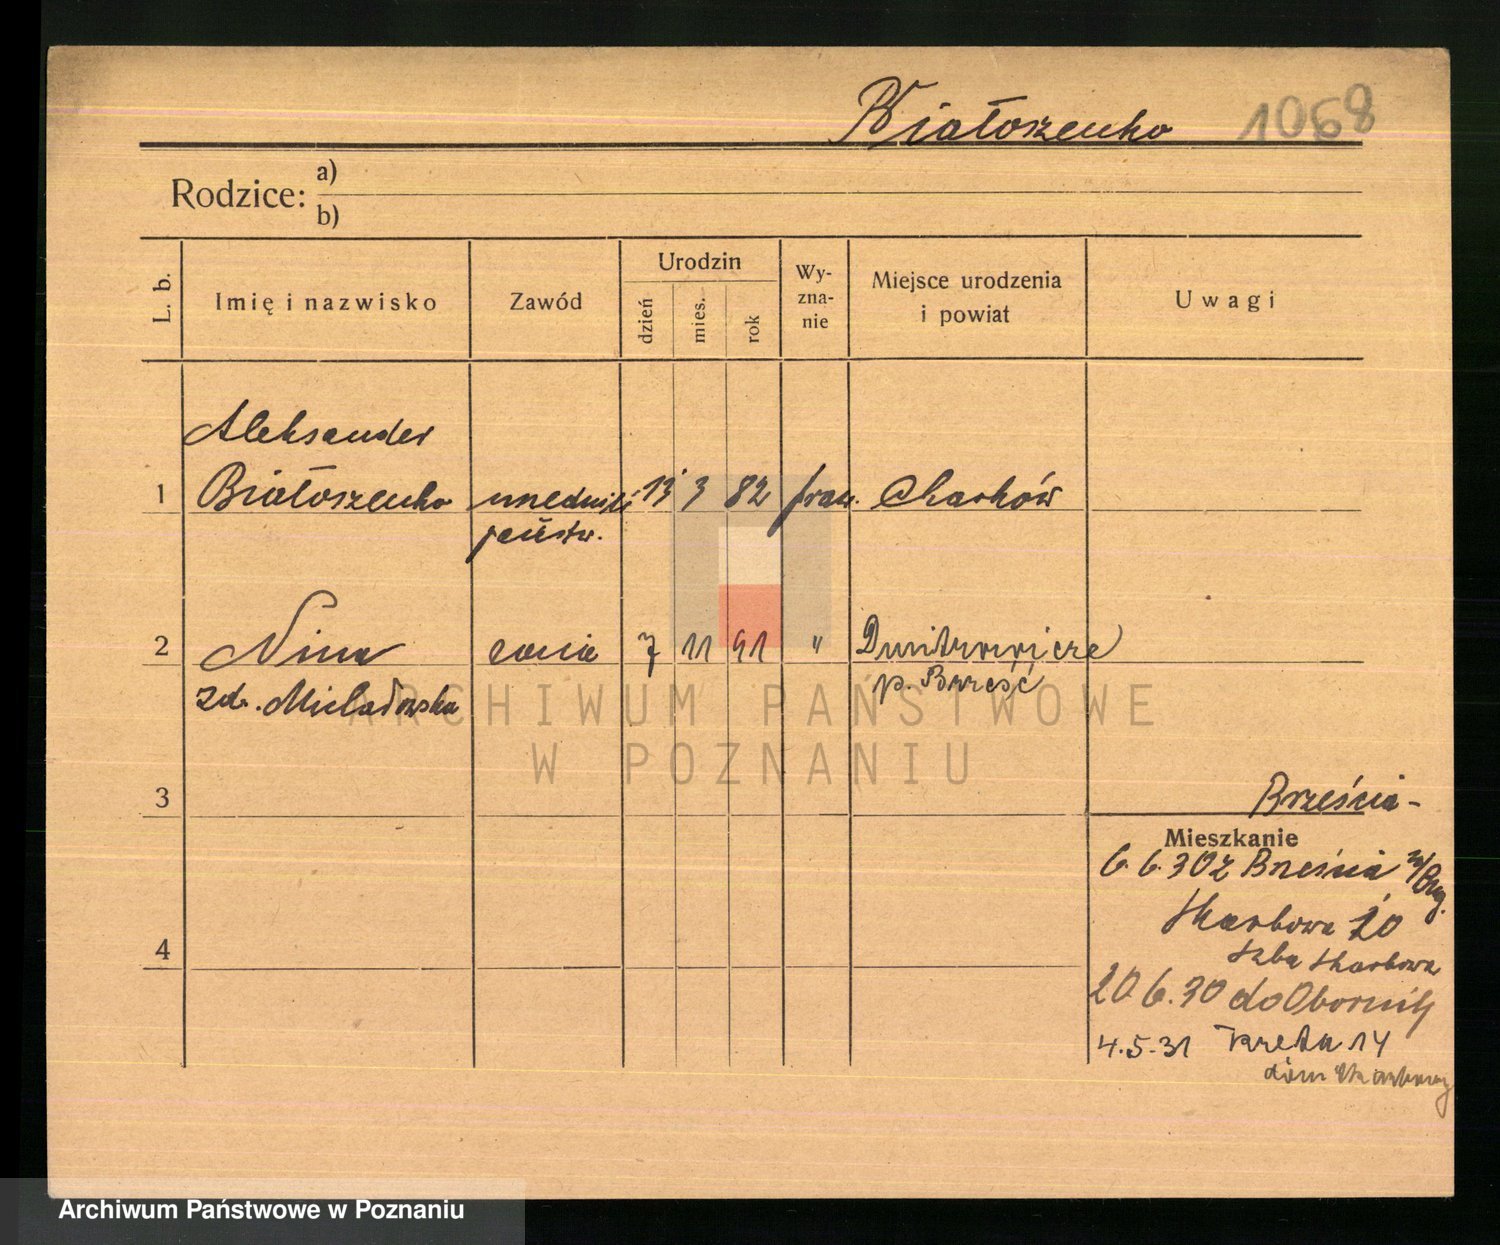 Białoszenko 1068
Rodzice: a)
b)
L. b.
Imię i nazwisko
Zawód
Urodzin
dzień
mies.
rok
Wy-
zna-
nie
Miejsce urodzenia
i powiat
Uwagi
Aleksander
1 Białoszenko urzędnik 13 3 82 praw. Charków
państw.
2 Nina żona 7 11 91 "
p. Brześć
zd.
3
Brześcia -
Mieszkanie
4
6.6.30 z Brześcia n/Bug.
Skarbowa 20
Izba Skarbowa
20.6.30 do Obornik
4.5.31 Kreta 14
dom Skarbowy
ARCHIWUM PAŃSTWOWE
W POZNANIU
Archiwum Państwowe w Poznaniu